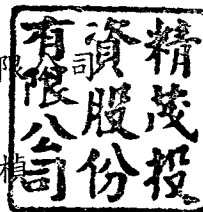 精茂投
資股份
有限公司
限
司